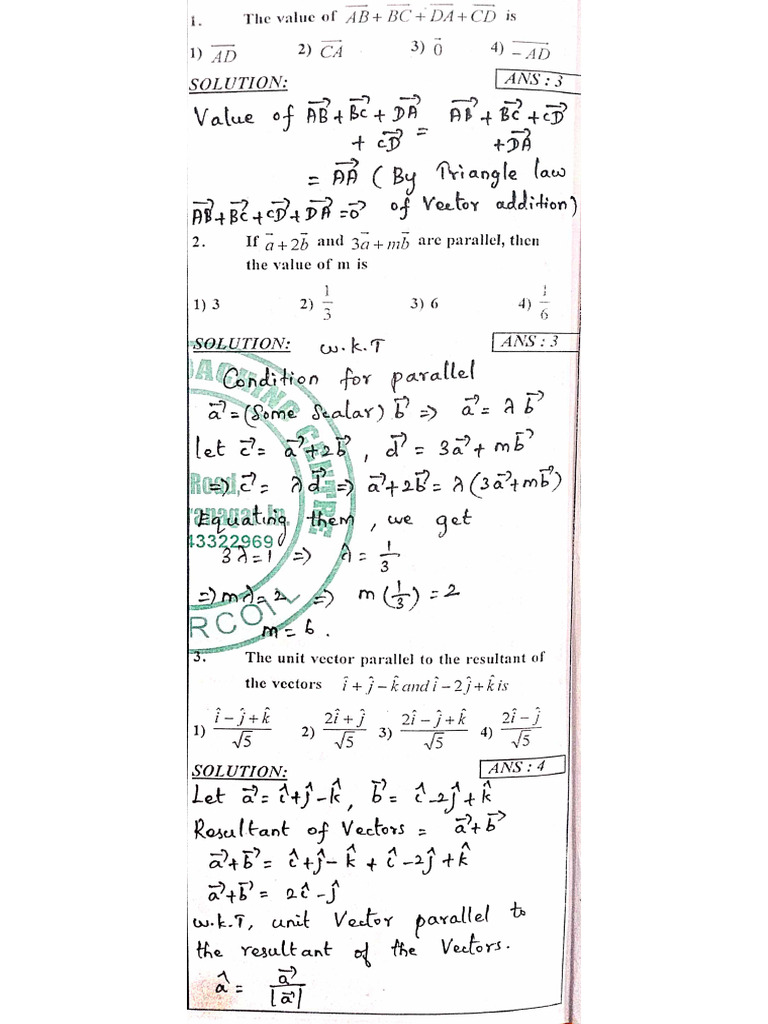 1. The value of AB + BC + DA + CD is
1) AD 2) CA 3) 0 4) −AD
SOLUTION: ANS : 3
Value of AB + BC + DA + CD = AB + BC + CD + DA
= AA (By Triangle law
AB + BC + CD + DA = 0 of Vector addition)
2. If a + 2b and 3a + mb are parallel, then
the value of m is
1) 3 2) 1/3 3) 6 4) 1/6
SOLUTION: w.k.T ANS : 3
Condition for parallel
a = (Some Scalar) b => a = λ b
let c = a + 2b, d = 3a + mb
=> c = λd => a + 2b = λ(3a + mb)
Equating them, we get
3λ = 1 => λ = 1/3
=> mλ = 2 => m(1/3) = 2
m = 6.
3. The unit vector parallel to the resultant of
the vectors î + ĵ − k̂ and î − 2ĵ + k̂ is
1) î − ĵ + k̂ / √5 2) 2î + ĵ / √5 3) 2î − ĵ + k̂ / √5 4) 2î − ĵ / √5
SOLUTION: ANS : 4
Let a = î + ĵ − k̂, b = î − 2ĵ + k̂
Resultant of Vectors = a + b
a + b = î + ĵ − k̂ + î − 2ĵ + k̂
a + b = 2î − ĵ
w.k.T, unit Vector parallel to
the resultant of the Vectors.
â = a / |a|
COACHING CENTRE
Road,
43322969
RCOIL